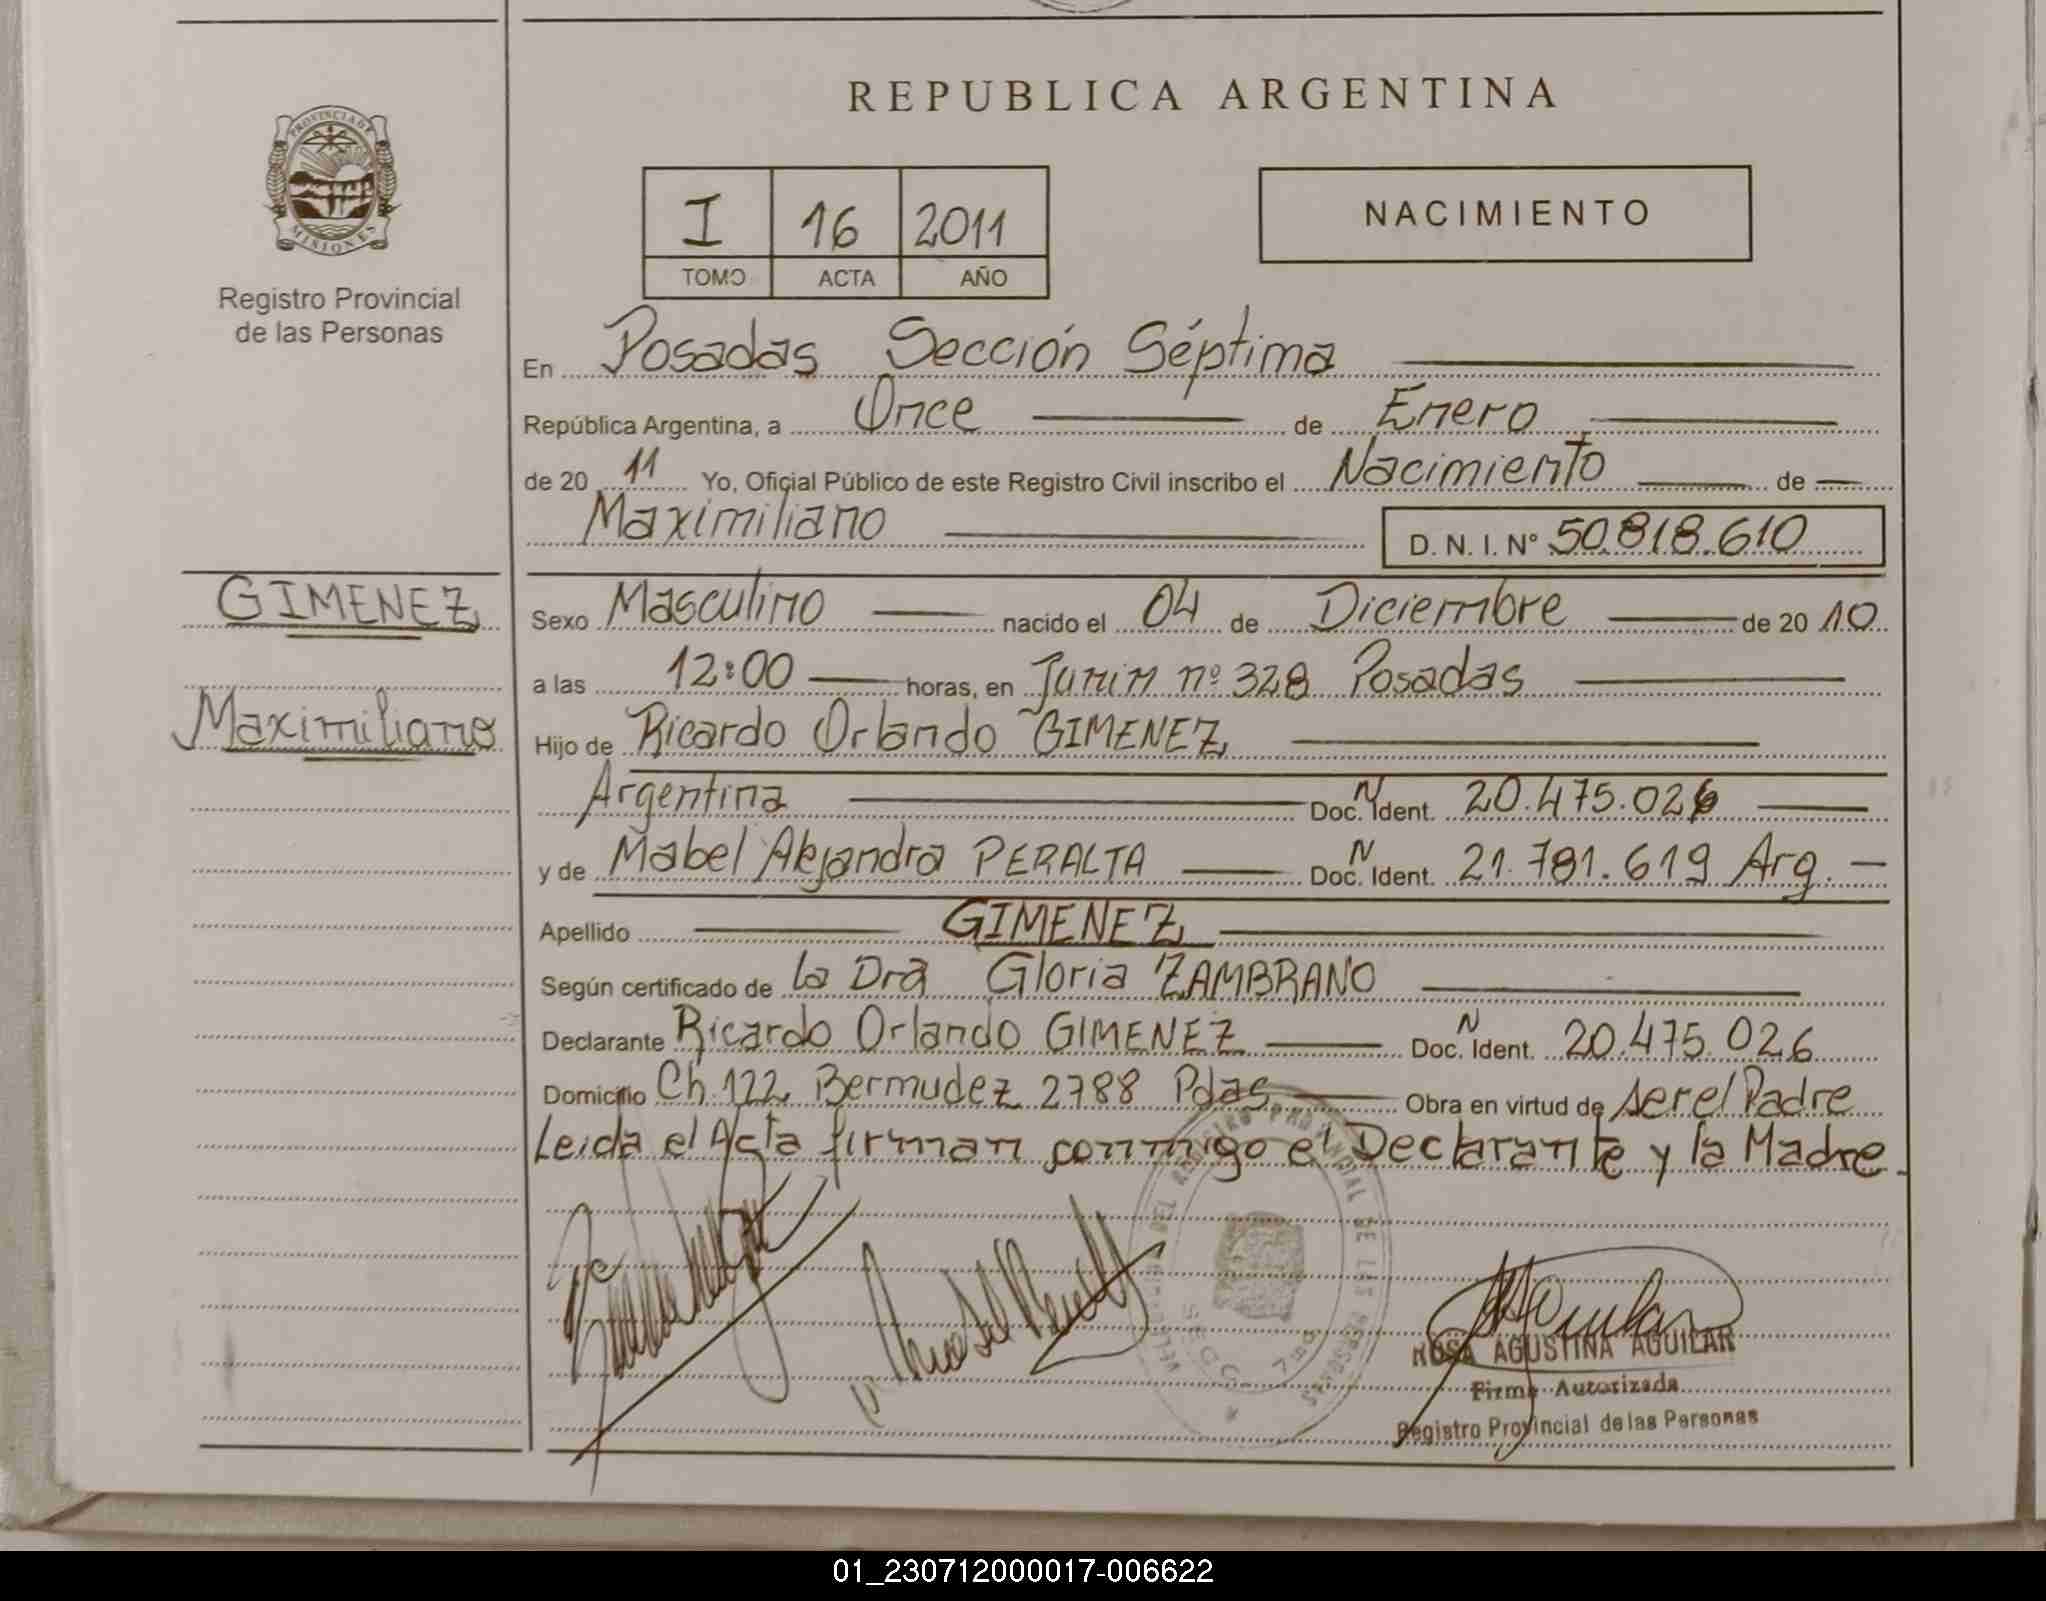 REPUBLICA ARGENTINA
PROVINCIA DE
MISIONES
Registro Provincial
de las Personas
I 16 2011
TOMO ACTA AÑO
NACIMIENTO
En Posadas Sección Séptima
República Argentina, a Once de Enero
de 20 11 Yo, Oficial Público de este Registro Civil inscribo el Nacimiento de
Maximiliano D. N. I. Nº 50.818.610
GIMENEZ
Maximiliano
Sexo Masculino nacido el 04 de Diciembre de 20 10
a las 12:00 horas, en Junin nº 328 Posadas
Hijo de Ricardo Orlando GIMENEZ
Argentina Doc. N Ident. 20.475.026
y de Mabel Alejandra PERALTA Doc. N Ident. 21.781.619 Arg.
Apellido GIMENEZ
Según certificado de la Dra Gloria ZAMBRANO
Declarante Ricardo Orlando GIMENEZ Doc. N Ident. 20.475.026
Domicilio Ch. 122 Bermudez 2788 Pdas Obra en virtud de ser el Padre
Leida el Acta firman conmigo el Declarante y la Madre.
ROSA AGUSTINA AGUILAR
Firma Autorizada
Registro Provincial de las Personas
01_230712000017-006622